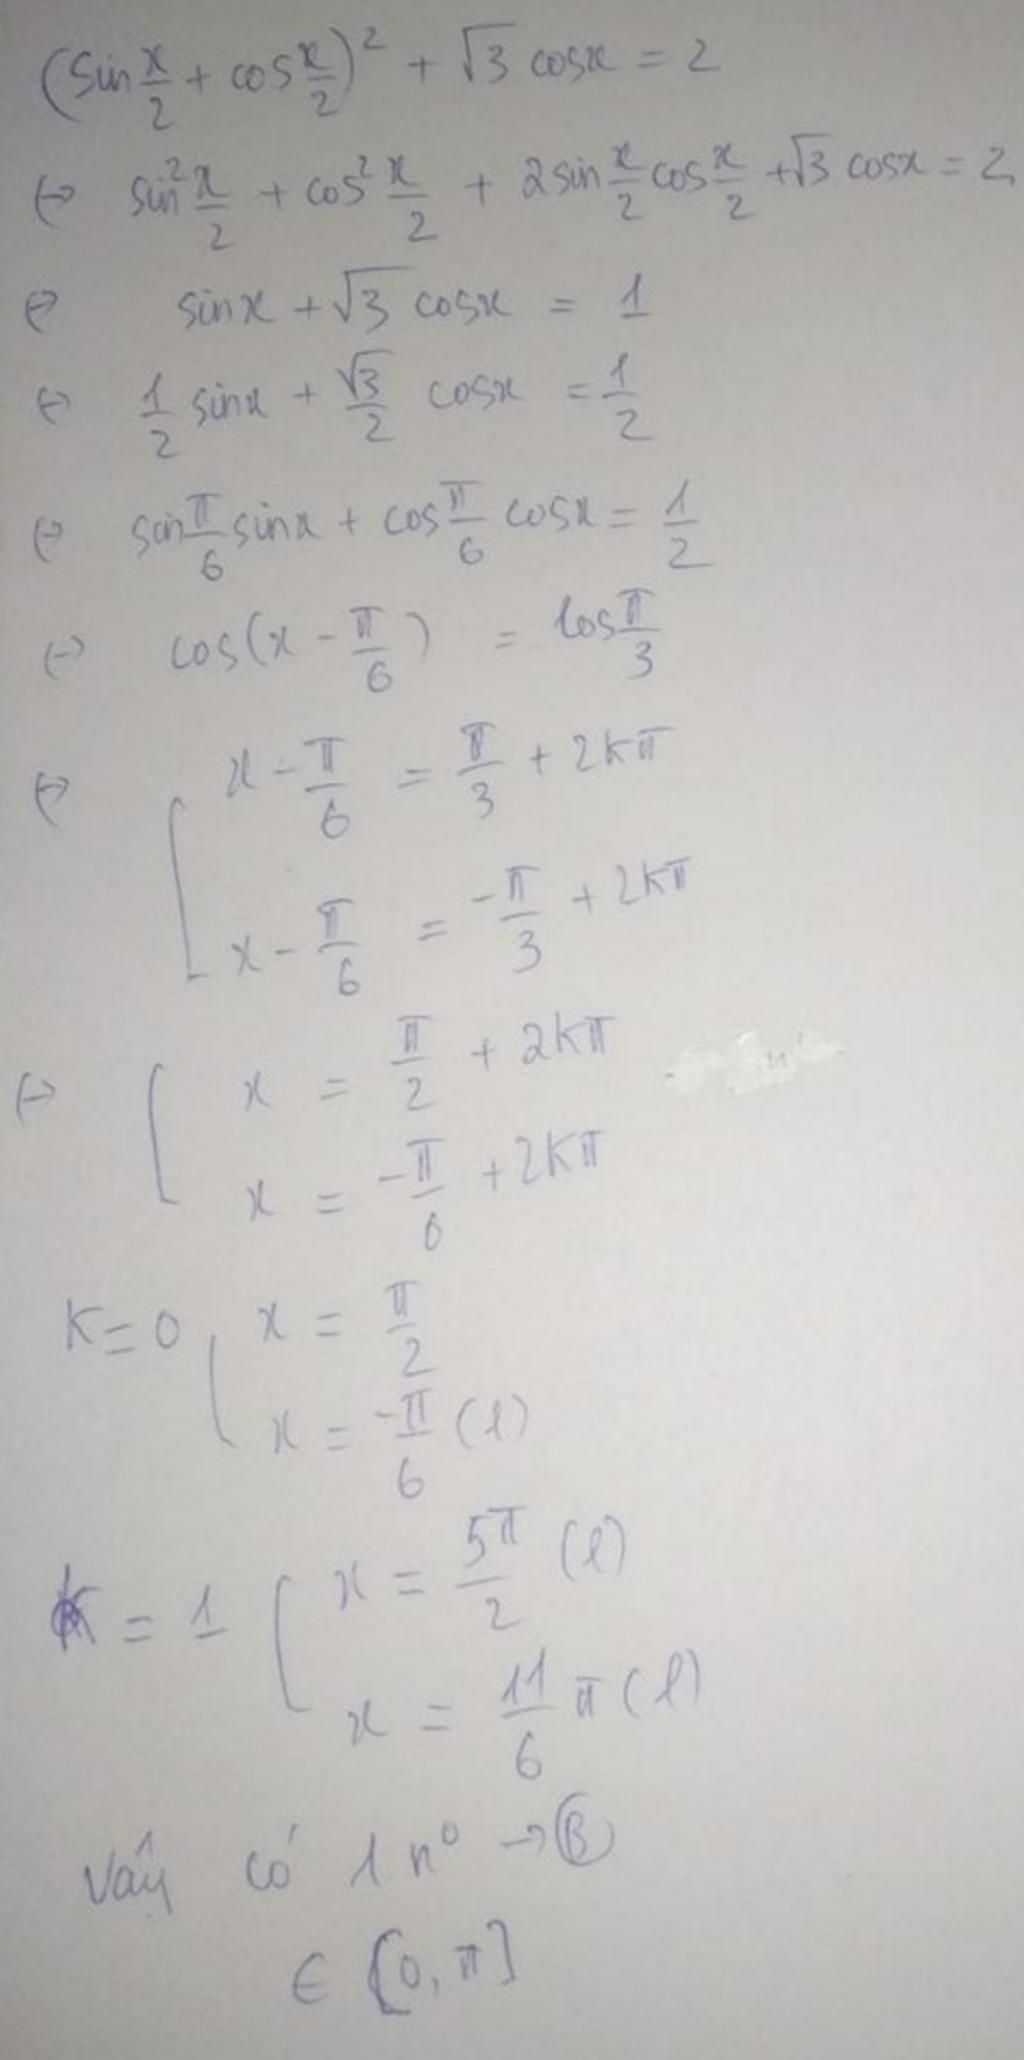 (sin x/2 + cos x/2)² + √3 cosx = 2
⇔ sin² x/2 + cos² x/2 + 2sin x/2 cos x/2 + √3 cosx = 2
⇔ sinx + √3 cosx = 1
⇔ 1/2 sinx + √3/2 cosx = 1/2
⇔ sin π/6 sinx + cos π/6 cosx = 1/2
⇔ cos(x - π/6) = cos π/3
⇔ [ x - π/6 = π/3 + 2kπ
x - π/6 = -π/3 + 2kπ
⇔ [ x = π/2 + 2kπ
x = -π/6 + 2kπ
K=0 [ x = π/2
x = -π/6 (l)
K = 1 [ x = 5π/2 (l)
x = 11/6 π (l)
Vậy có 1 n⁰ → Ⓑ
∈ [0, π]